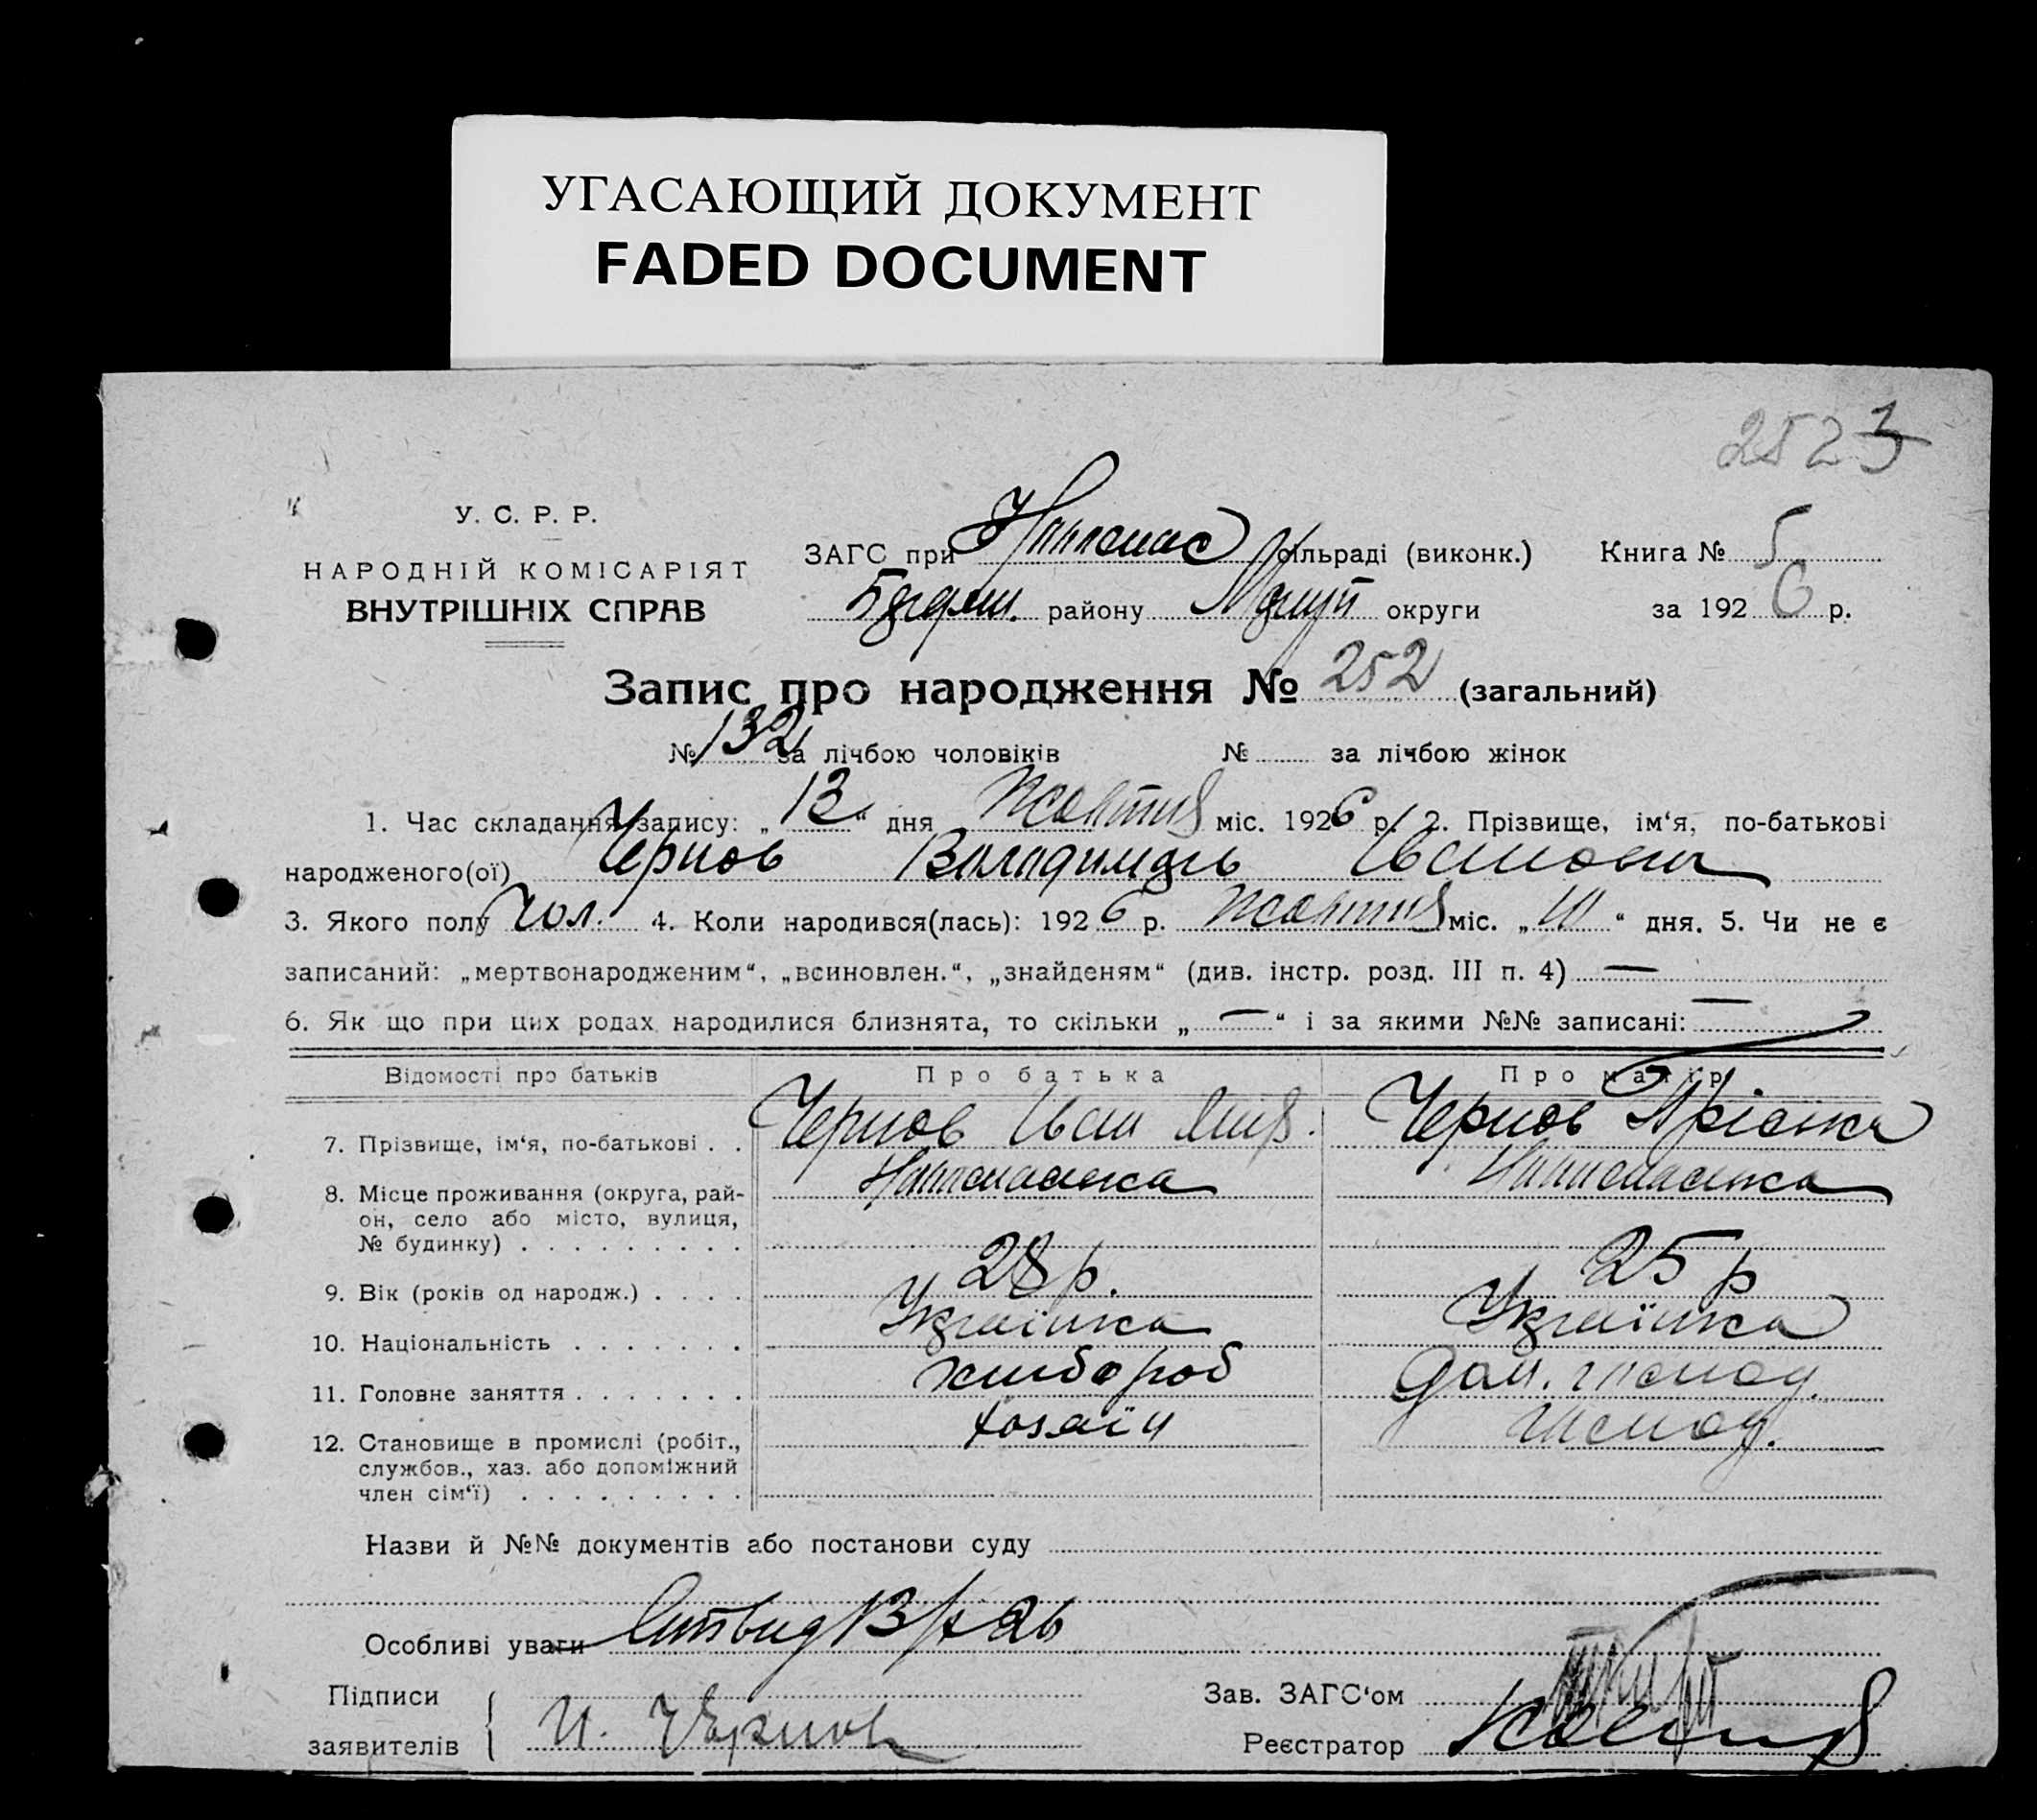 УГАСАЮЩИЙ ДОКУМЕНТ
FADED DOCUMENT
2523
У. С. Р. Р.
НАРОДНІЙ КОМІСАРІЯТ
ВНУТРІШНІХ СПРАВ
ЗАГС при сільраді (виконк.)
району округи
Книга № 5
за 1926 р.
Запис про народження № 252 (загальний)
№ 132 за лічбою чоловіків № за лічбою жінок
1. Час складання запису: „13“ дня Жовтня міс. 1926 р. 2. Прізвище, ім‘я, по-батькові
народженого(ої) Чернов Володимирь Іванович
3. Якого полу Чол. 4. Коли народився(лась): 1926 р. Жовтня міс. „ “ дня. 5. Чи не є
записаний: „мертвонародженим“, „всиновлен.“, „знайденям“ (див. інстр. розд. III п. 4) —
6. Як що при цих родах народилися близнята, то скільки „—“ і за якими №№ записані: —
Відомості про батьків Про батька Про матір
7. Прізвище, ім‘я, по-батькові . . Чернов Іван Чернов
8. Місце проживання (округа, рай-
он, село або місто, вулиця,
№ будинку) . . . . . . . . .
9. Вік (років од народж.) . . . . 28 р. 25 р
10. Національність . . . . . . . Українка Українка
11. Головне заняття . . . . . . . хлібороб Дом. господ.
12. Становище в промислі (робіт., хозяїн господ.
службов., хаз. або допоміжний
член сім‘ї) . . . . . . . . .
Назви й №№ документів або постанови суду
Особливі уваги
Підписи
заявителів И. Чернов
Зав. ЗАГС‘ом
Реєстратор